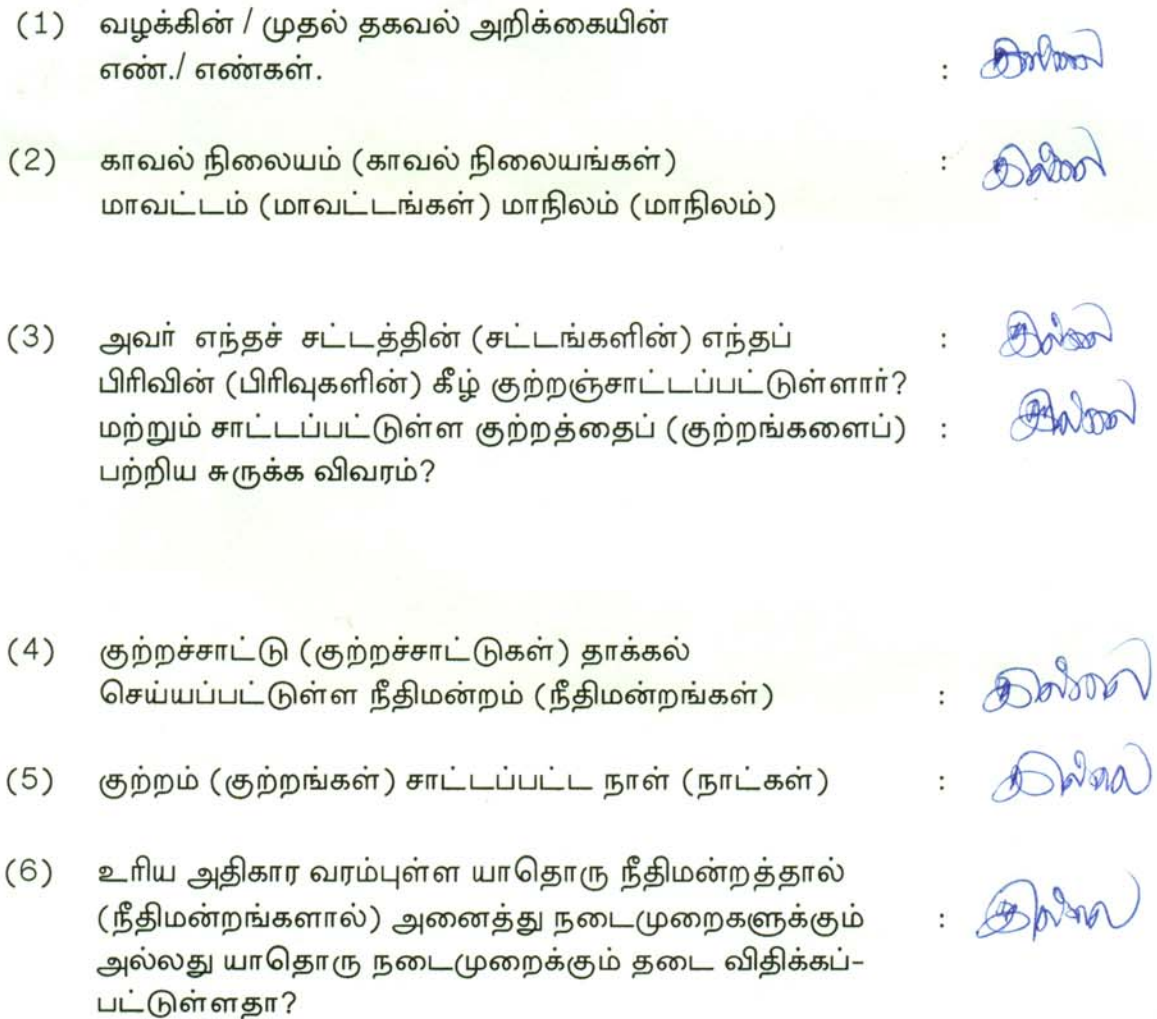 (1) வழக்கின் / முதல் தகவல் அறிக்கையின்
எண்./ எண்கள். : இல்லை
(2) காவல் நிலையம் (காவல் நிலையங்கள்) : இல்லை
மாவட்டம் (மாவட்டங்கள்) மாநிலம் (மாநிலம்)
(3) அவர் எந்தச் சட்டத்தின் (சட்டங்களின்) எந்தப் : இல்லை
பிரிவின் (பிரிவுகளின்) கீழ் குற்றஞ்சாட்டப்பட்டுள்ளார்?
மற்றும் சாட்டப்பட்டுள்ள குற்றத்தைப் (குற்றங்களைப்) : இல்லை
பற்றிய சுருக்க விவரம்?
(4) குற்றச்சாட்டு (குற்றச்சாட்டுகள்) தாக்கல்
செய்யப்பட்டுள்ள நீதிமன்றம் (நீதிமன்றங்கள்) : இல்லை
(5) குற்றம் (குற்றங்கள்) சாட்டப்பட்ட நாள் (நாட்கள்) : இல்லை
(6) உரிய அதிகார வரம்புள்ள யாதொரு நீதிமன்றத்தால்
(நீதிமன்றங்களால்) அனைத்து நடைமுறைகளுக்கும் : இல்லை
அல்லது யாதொரு நடைமுறைக்கும் தடை விதிக்கப்-
பட்டுள்ளதா?